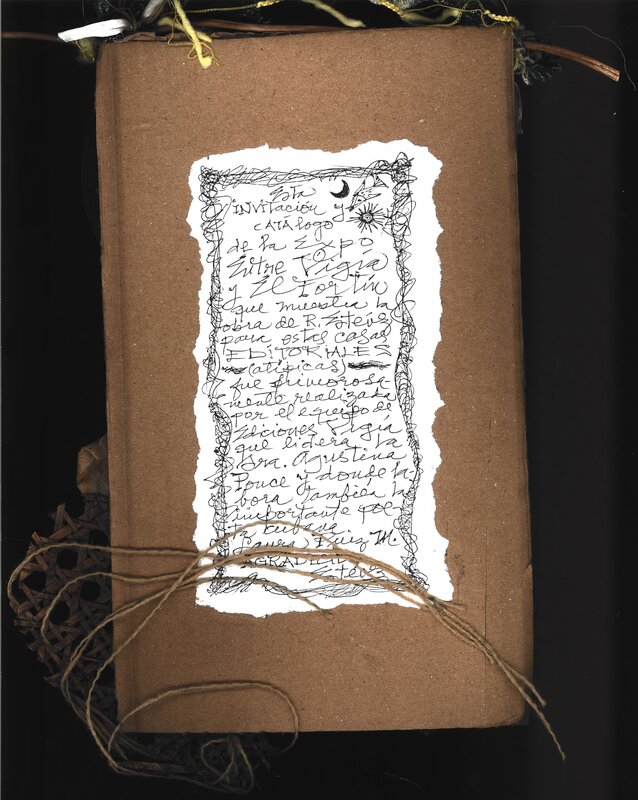 Esta
INVITACIÓN y
CATÁLOGO
de la Expo
Entre Vigía
y El Fortín
que muestra la
obra de R. Estévez
para estas casas
EDITORIALES
(atípicas)
fue primorosa
mente realizada
por el equipo de
Ediciones Vigía
que lidera la
Sra. Agustina
Ponce y donde la-
bora también la
importante poe-
ta cubana
Laura Ruiz M.
AGRADECIDO
Estévez